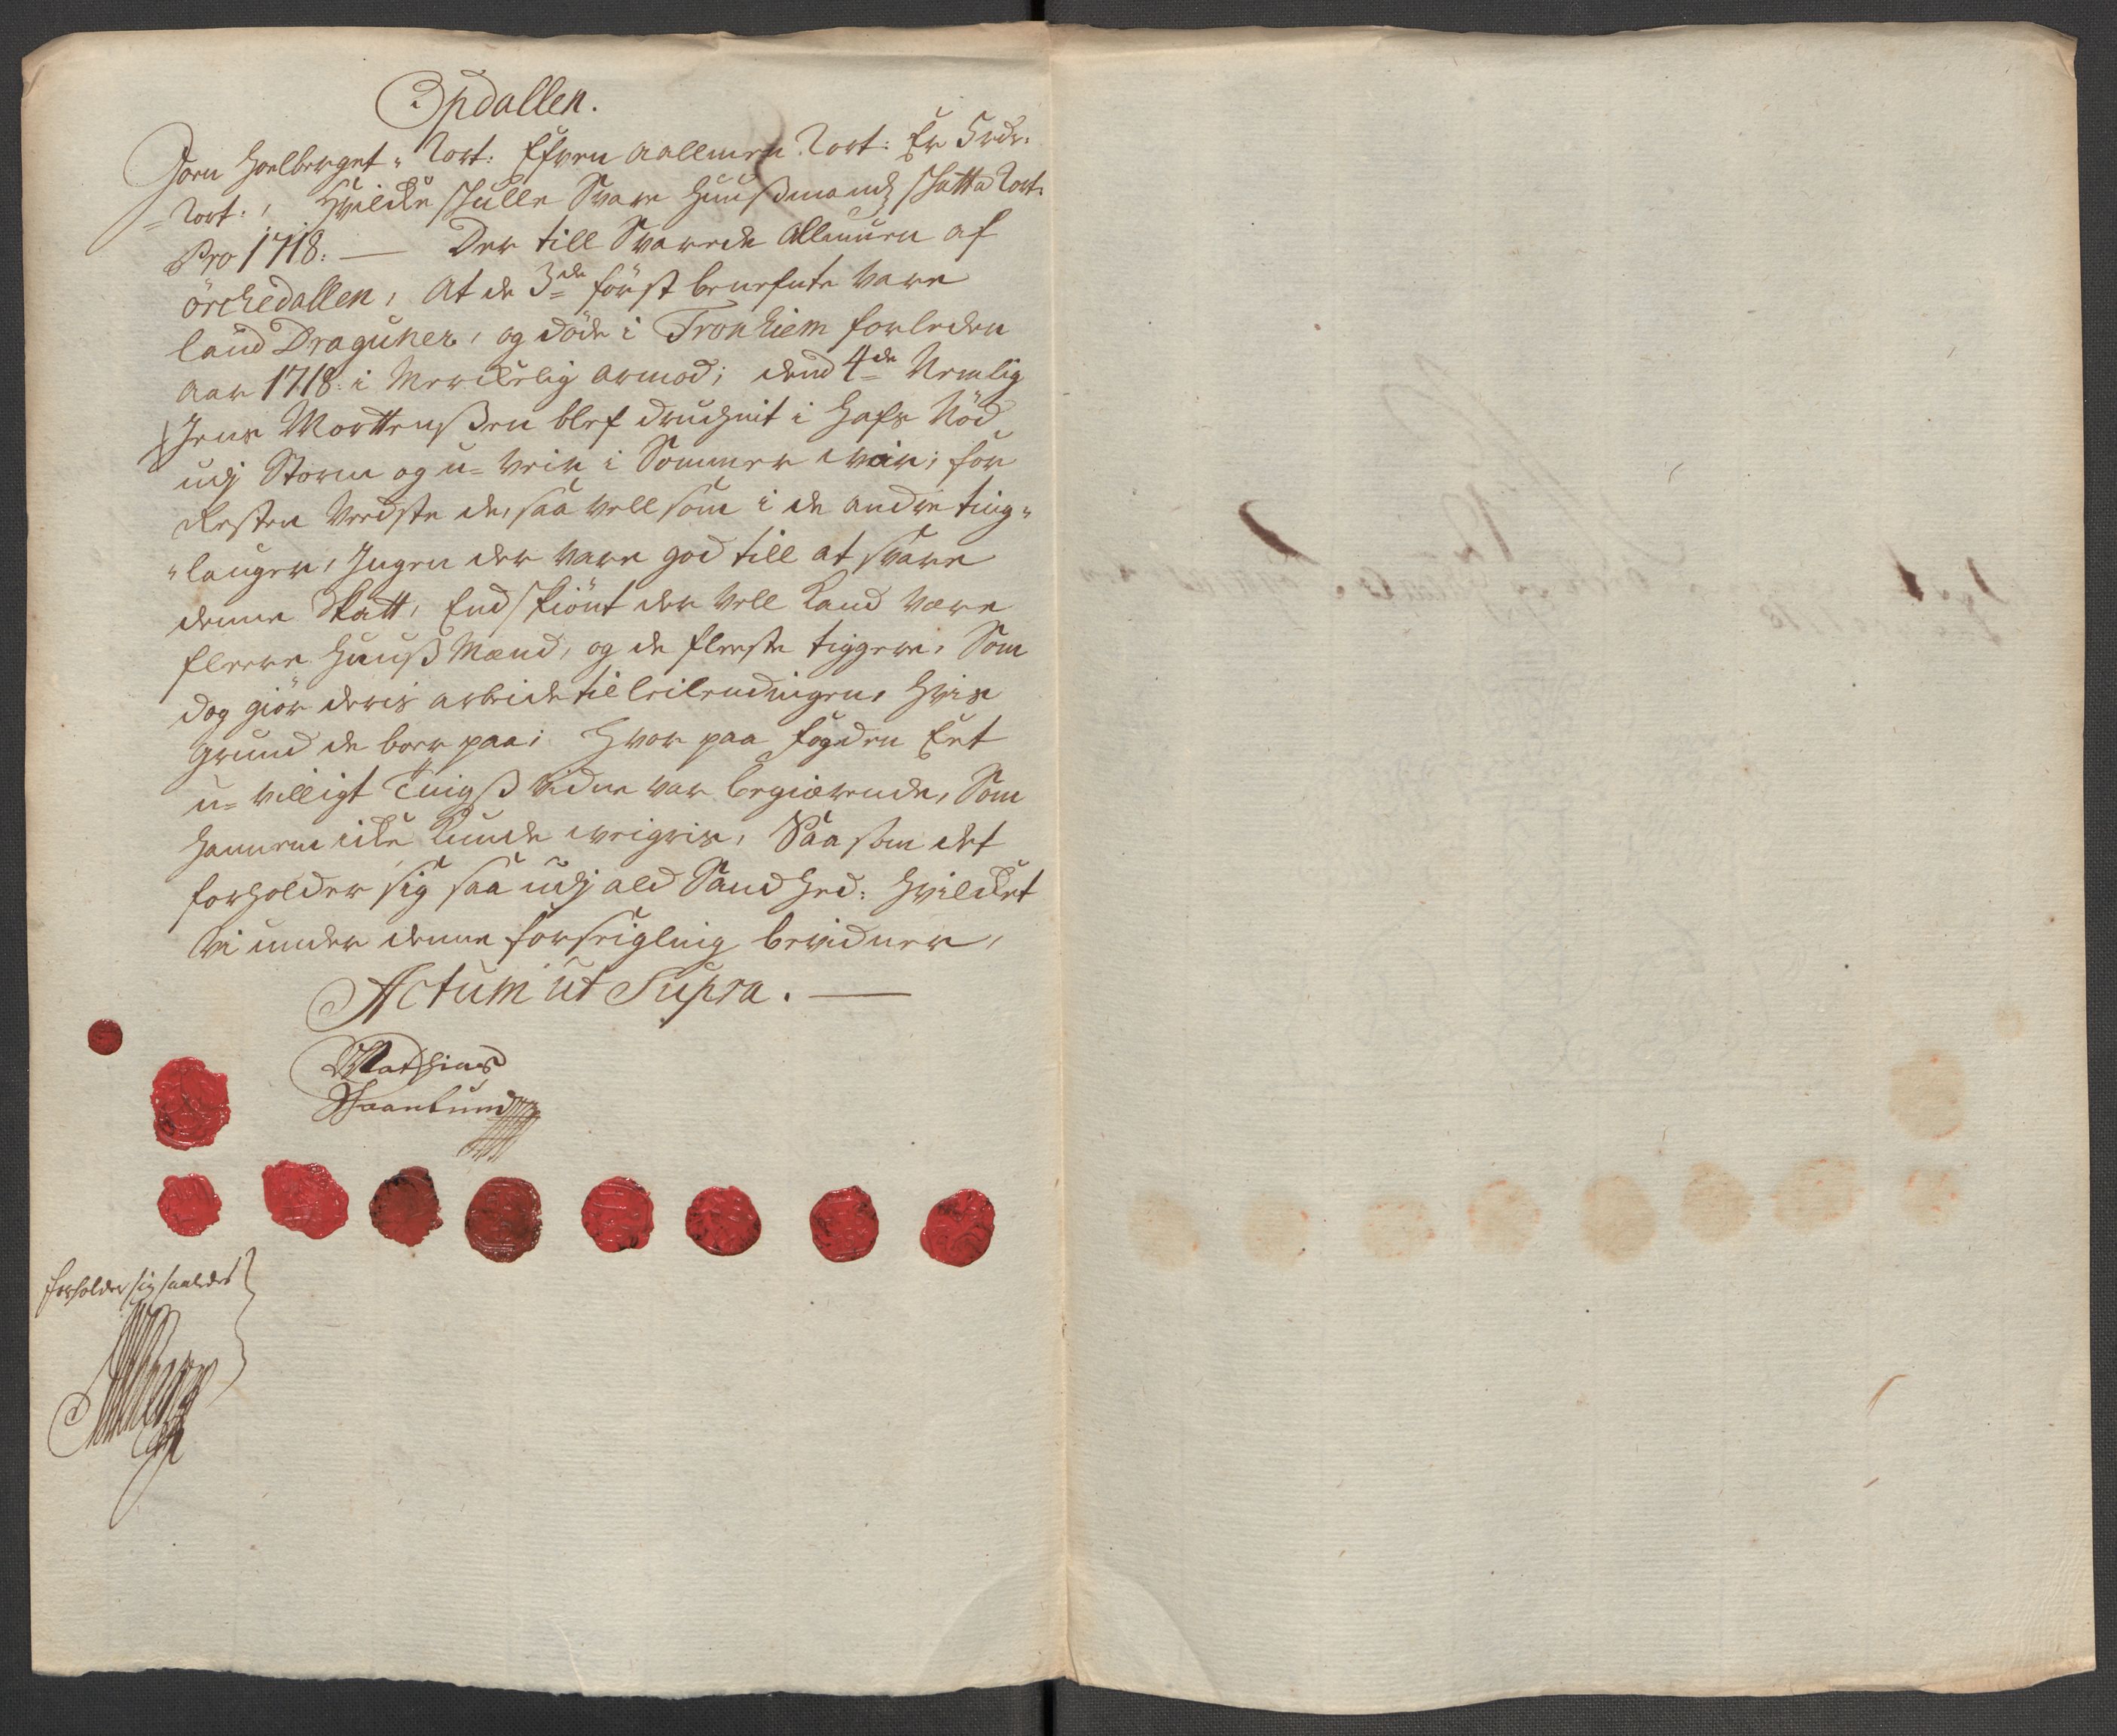 Opdallen.
Joen Hoelberget - 2 ort: Efven aallmen 2 ort: Er 5 rdr:
2 ort:, Hvilcke skulle Svare Huusmandz skatt
Pro 1718: — Der till Svarede Allmuen af
örchedallen, At de 3de först benefnte vare
land Draguner, og döde i Tronhiem forleden
aar 1718: i Merckelig armod; dend 4de Nemlig
Jens Morttenssen blef druchnit i Hafs Nöd
udj Storm og u-veir i Sommer var; for
Resten Viedste de, saa vell som i de andre ting-
-lauger, Ingen der vare god till at svare
denne Skatt, Endskiönt der vell Kand være
fleere Huuss Mænd, og de fleeste tiggere, Som
dog giör deris arbeide til leilendingen, hvis
grund de boer paa; Hvor paa fogden Eet
u-villigt Tingss vidne var begiærende, Som
hannem icke Kunde veigris, Saa som det
forholder sig saa udj ald Sandhed: Hvilcket
Vi under denne forseigling bevidner,
Actum ut Supra. —
Mathias
forholder sig saaledes